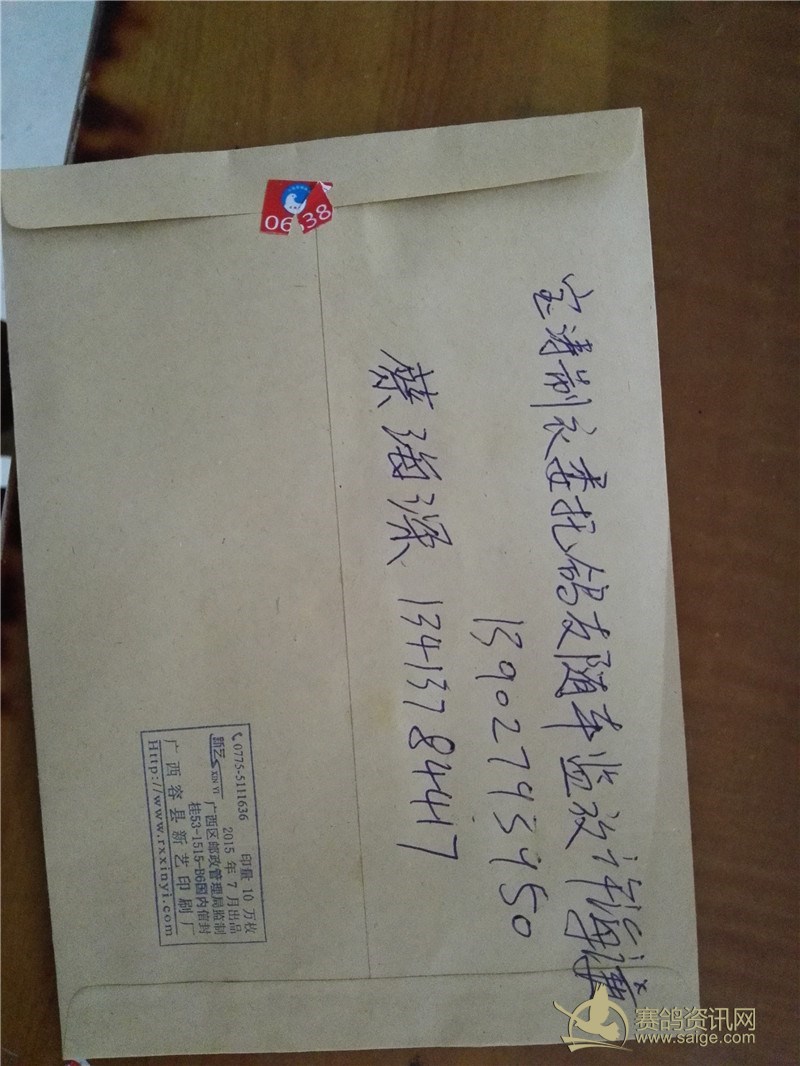 宝涛制衣委托鸽友随车监放许海涛
13902793950
蔡海深 13413784417
0638
0775-5111636 印量 10 万枚
新艺 XIN YI 2015 年 7 月出品
广西区邮政管理局监制
桂53-1515-B6国内信封
广西容县新艺印刷厂
Http://www.rxxinyi.com
赛鸽资讯网
www.saige.com